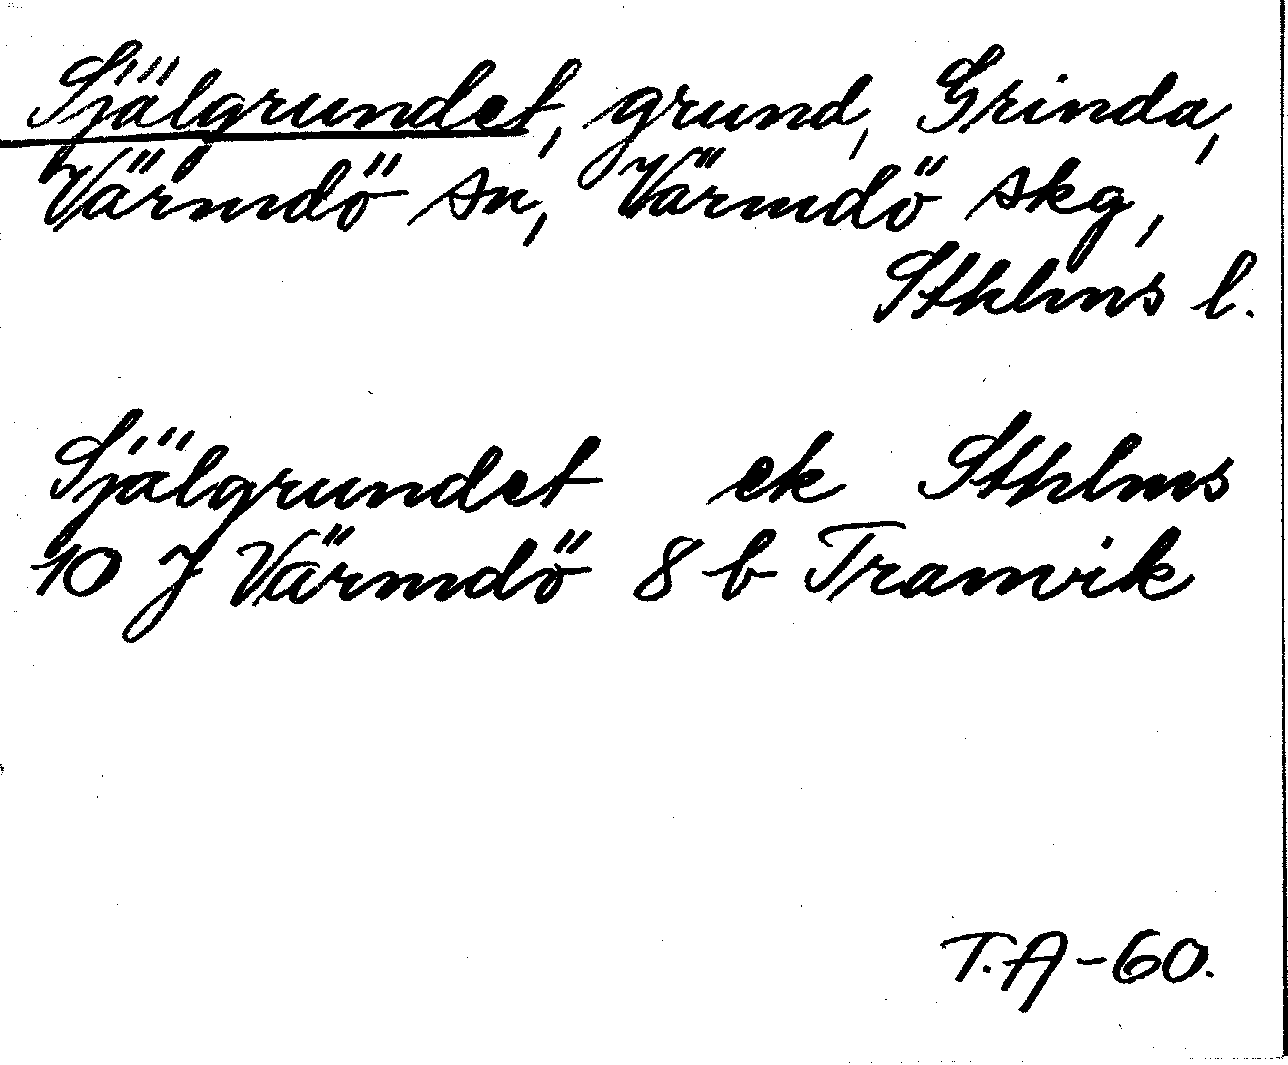 Själgrundet, grund, Grinda,
Värmdö sn, Värmdö skg,
Sthlms l.
Själgrundet ek Sthlms
10 J Värmdö 8 b Tranvik
T.A-60.